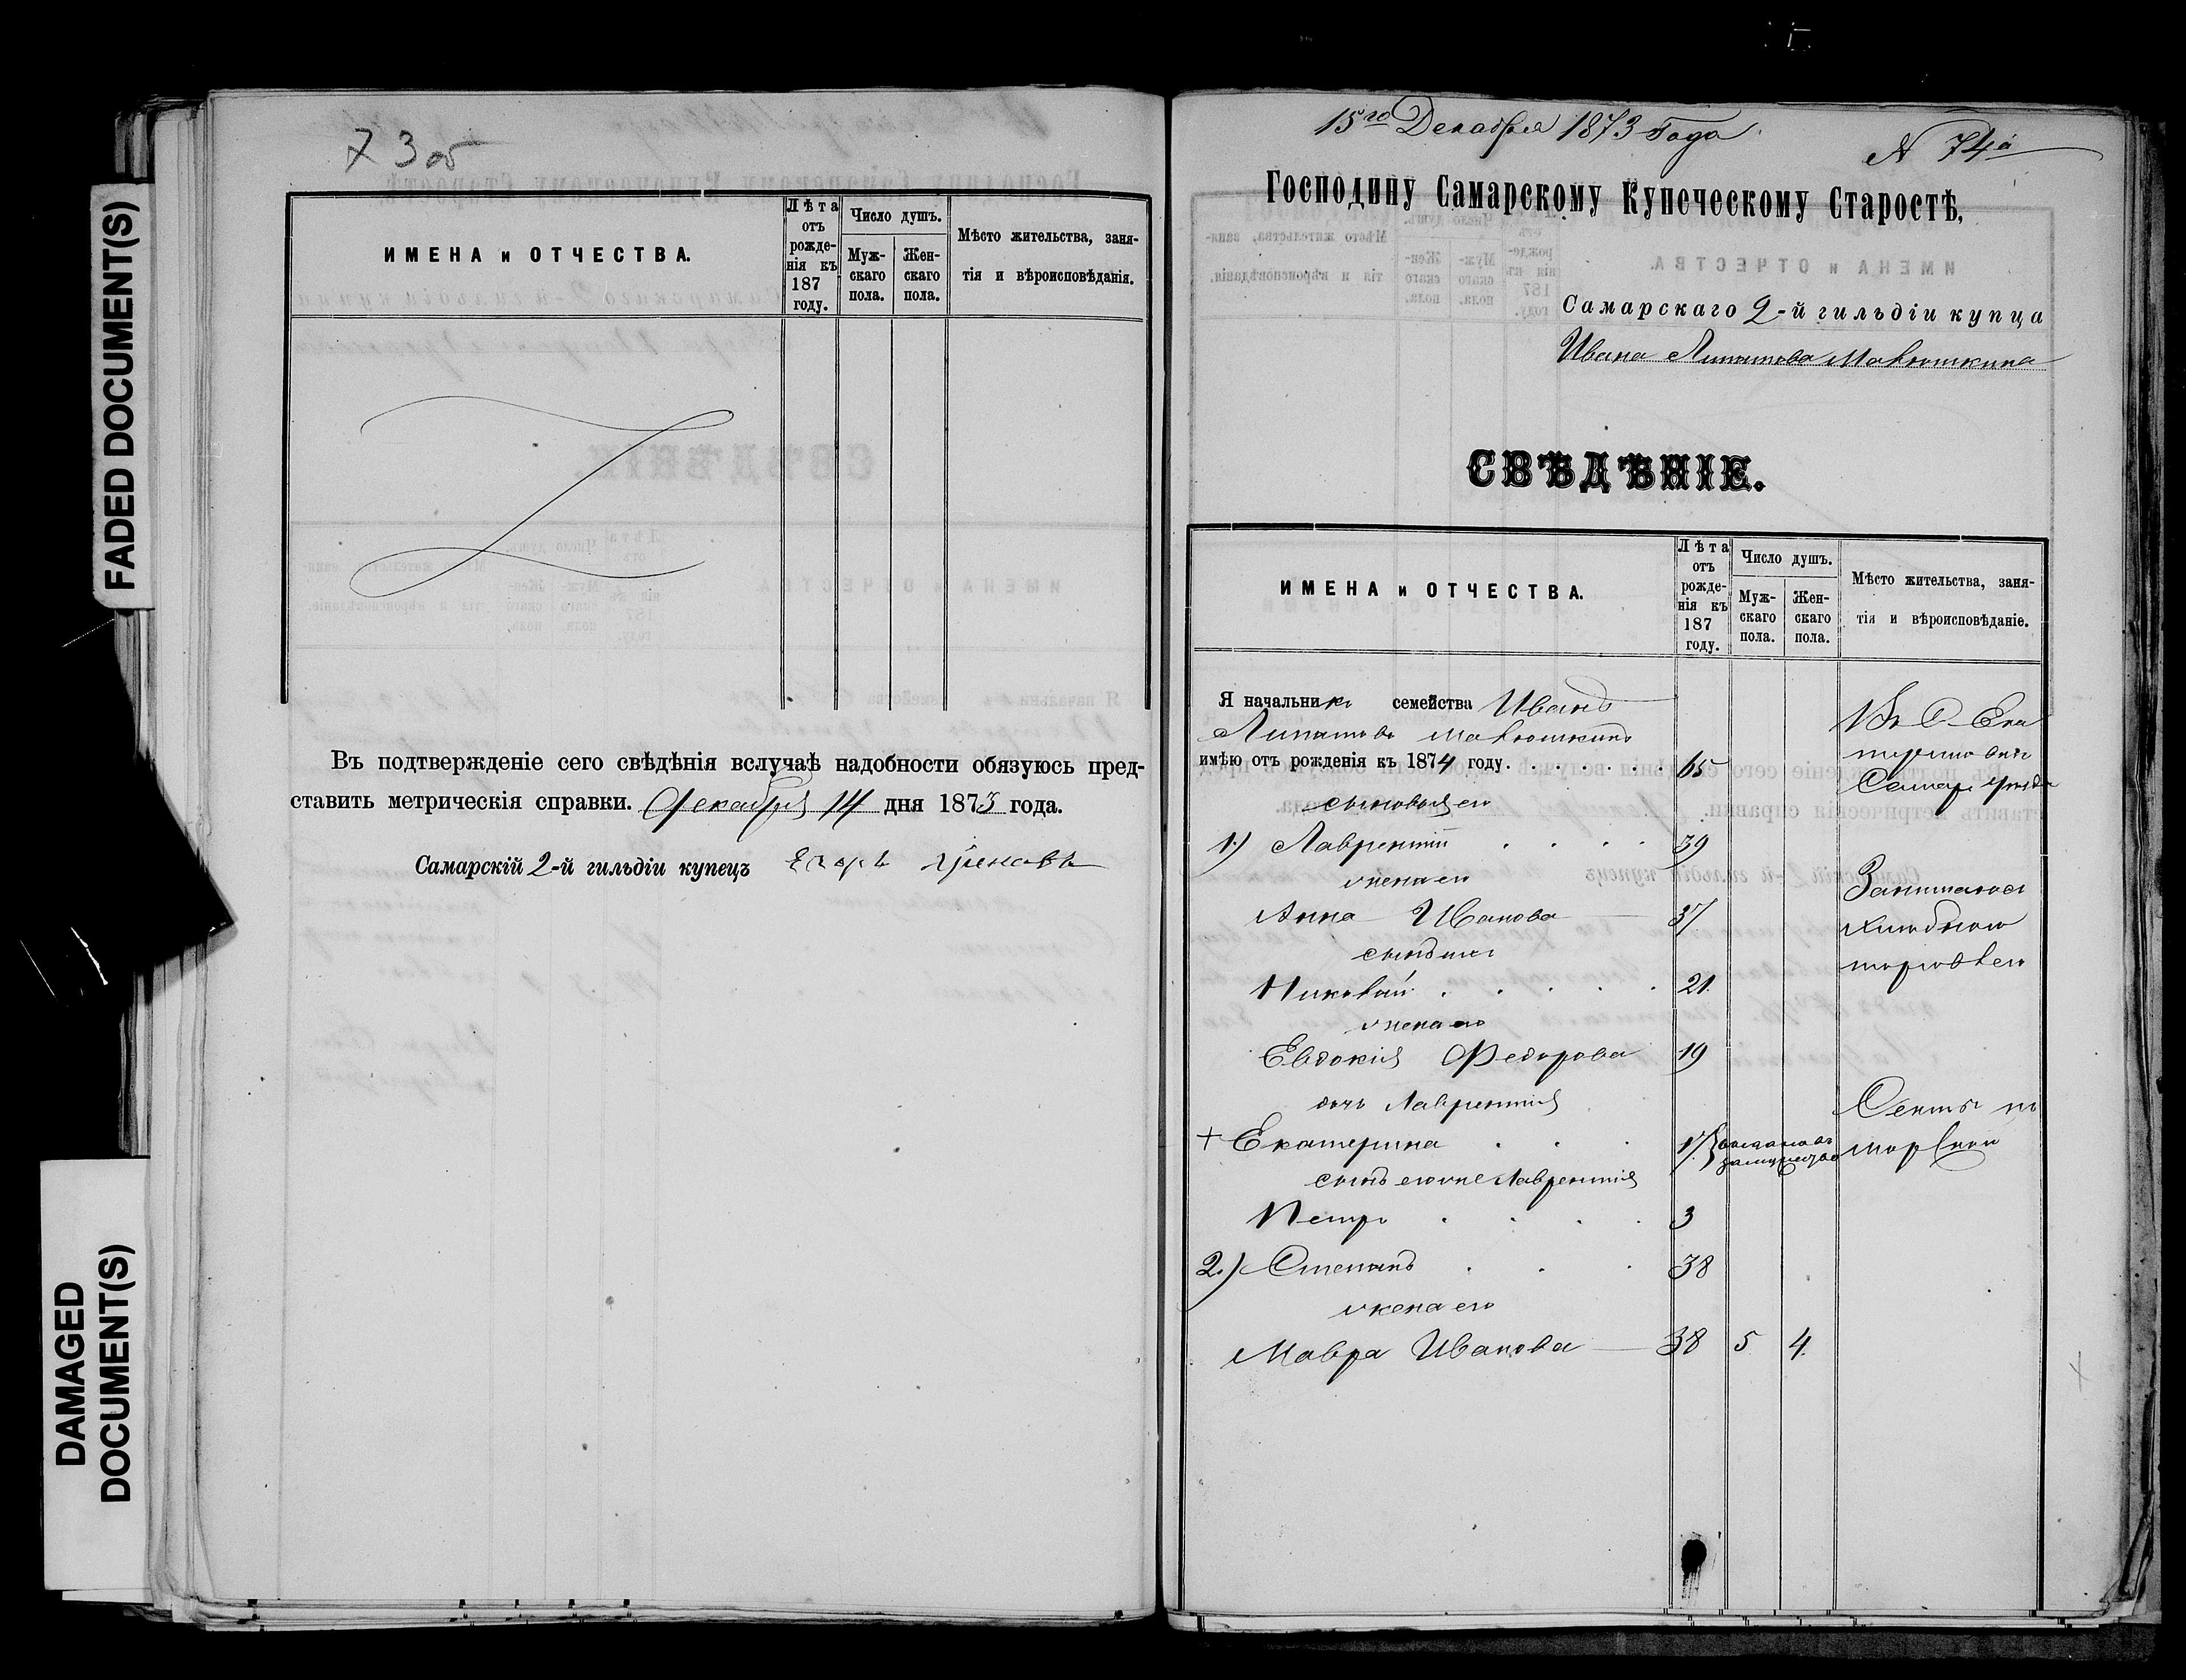 FADED DOCUMENT(S)
DAMAGED
DOCUMENT(S)
73 об
ИМЕНА и ОТЧЕСТВА.
Лѣта
отъ
рожде-
нія къ
187
году.
Число душъ.
Муж-
скаго
пола.
Жен-
скаго
пола.
Мѣсто жительства, заня-
тія и вѣроисповѣданія.
Въ подтвержденіе сего свѣдѣнія вслучаѣ надобности обязуюсь пред-
ставить метрическія справки. Декабря 14 дня 1873 года.
Самарскій 2-й гильдіи купецъ Егоръ
15го Декабря 1873 Года
N 74й
Господину Самарскому Купеческому Старостѣ,
Самарскаго 2-й гильдіи купца
Ивана Липатова Маклюшкина
СВѢДѢНІЕ.
ИМЕНА и ОТЧЕСТВА.
Лѣта
отъ
рожде-
нія къ
187
году.
Число душъ.
Муж-
скаго
пола.
Жен-
скаго
пола.
Мѣсто жительства, заня-
тія и вѣроисповѣданіе.
Я начальникъ семейства Иванъ
Липатовъ
имѣю отъ рожденія къ 1874 году. . . . . . . 65
сыновья его
1.) Лаврентій . . . . 39
жена его
Анна Иванова 37
сынъ
Николай . . . . . 21
жена его
Евдокія Федорова 19
дочь Лаврентія
+ Екатерина . . . 17 замужество
сынъ его же Лаврентія
Петръ . . . . 3
2.) Степанъ . . . 38
жена его
Мавра Иванова 38 5 4
Въ С Ека
териновкѣ
Самар уѣзда
Занимаюсь
хлѣбною
торговлею
Секты по
морской